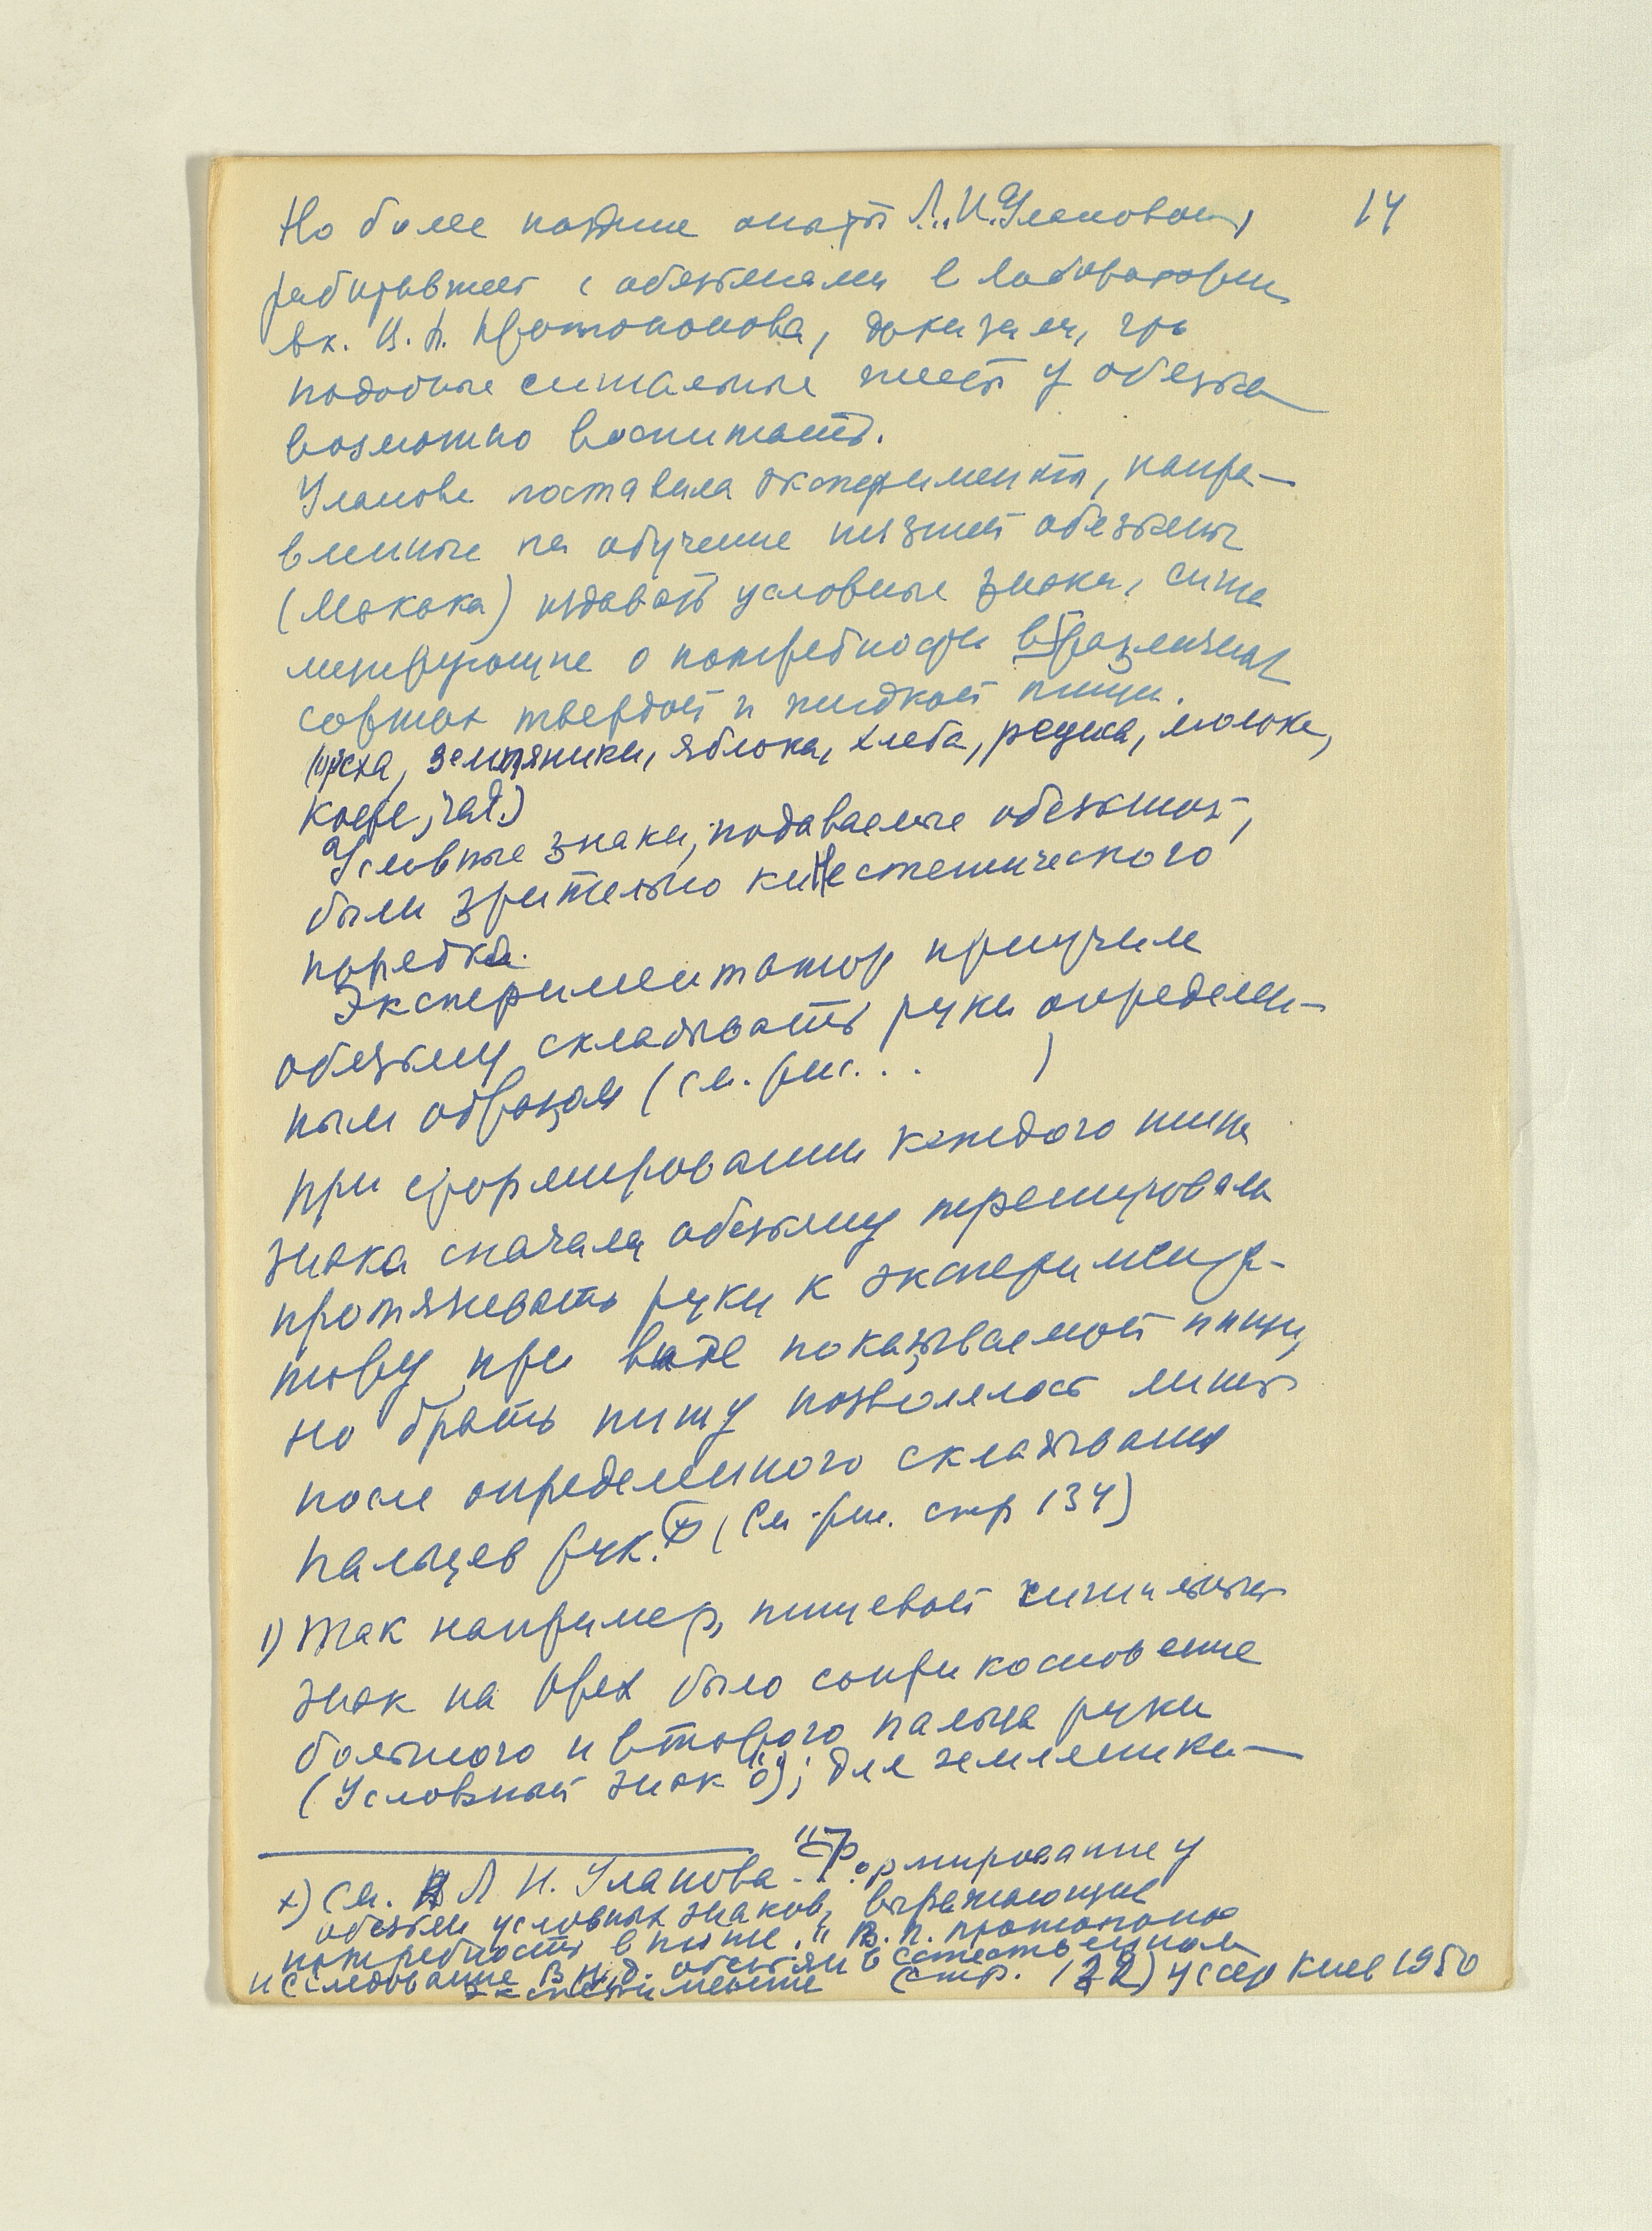 Но более поздние опыты Л.И. Улановой, 14
работавшей с обезьянами в лаборатории
ак. В. П. Протопопова, доказали, что
подобные сигнальные жесты у обезьян
возможно воспитать.
Уланова поставила эксперименты, напра-
вленные на обучение низшей обезьяны
(Макака) издавать условные знаки, сигна
лизирующие о потребности в различных
сортах твердой и жидкой пищи.
(ореха, земляники, яблока, хлеба, редиса, молока,
кофе, чая.)
Условные знаки, подаваемые обезьяной,
были зрительно кинестетического
порядка.
Экспериментатор приучил
обезьяну складывать руки определен-
ным образом (см. рис... )
При формировании каждого типа
знака сначала обезьяну тренировали
протягивать руки к эксперимента-
тору при виде показываемой пищи,
но брать пищу позволялось лишь
после определенного складывания
пальцев рук. х) (См. рис. стр 134)
1) Так например, пищевой сигнальный
знак на орех было соприкосновение
большого и второго пальца руки
(Условный знак "о"); для земляники —
х) См. Л И. Уланова - "Формирование у
обезьян условных знаков, выражающие
потребность в пище." В. П. Протопопов
исследование В Н. Д. обезьян в естественном
эксперименте стр. 132) УССР Киев 1950